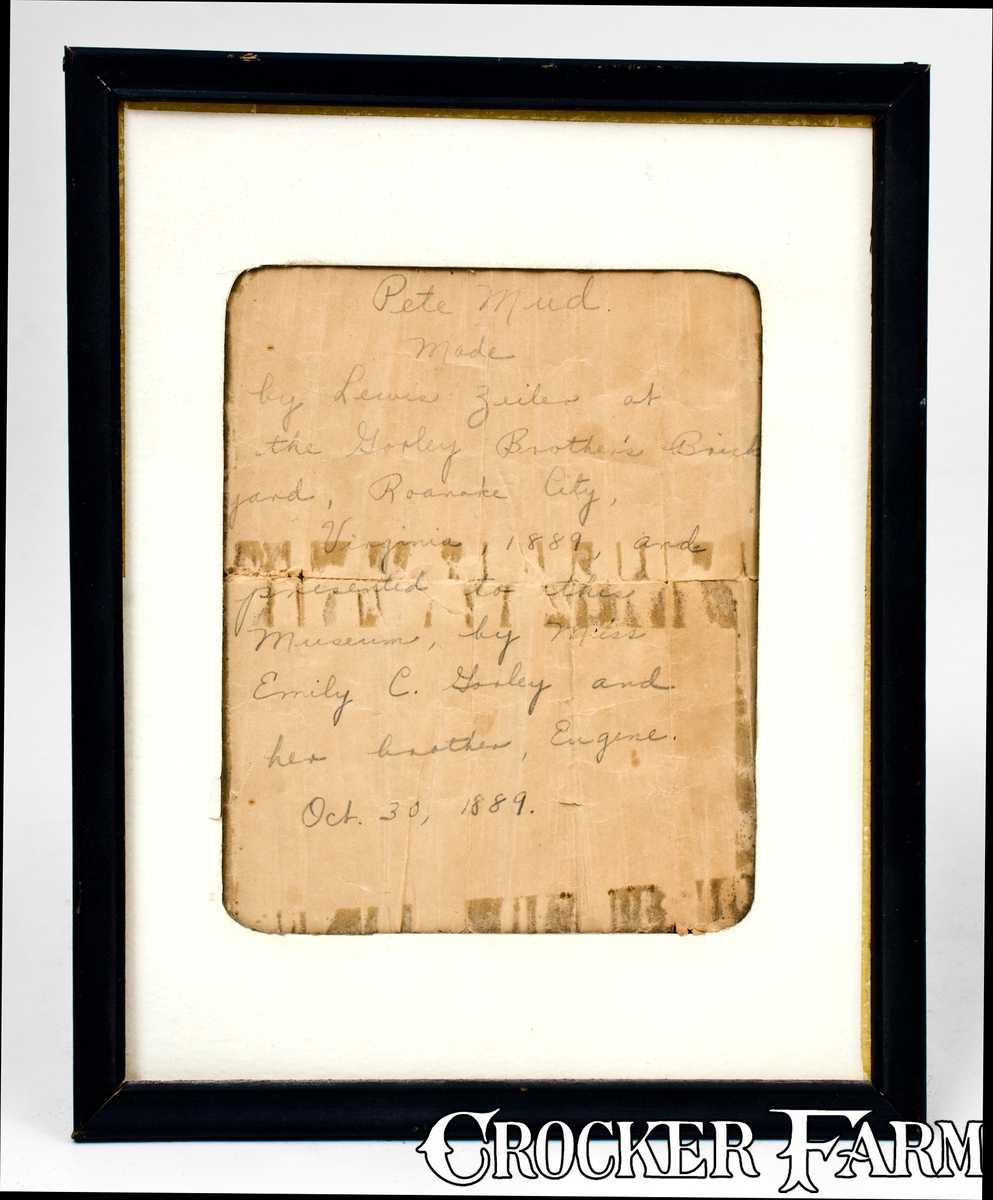 Pete Mud.
Made
by Lewis Zeiler at
the Gorley Brother's Brick
yard, Roanoke City,
Virginia, 1889, and
presented to this
Museum, by Miss
Emily C. Gorley and
her brother, Eugene.
Oct. 30, 1889. —
CROCKER FARM